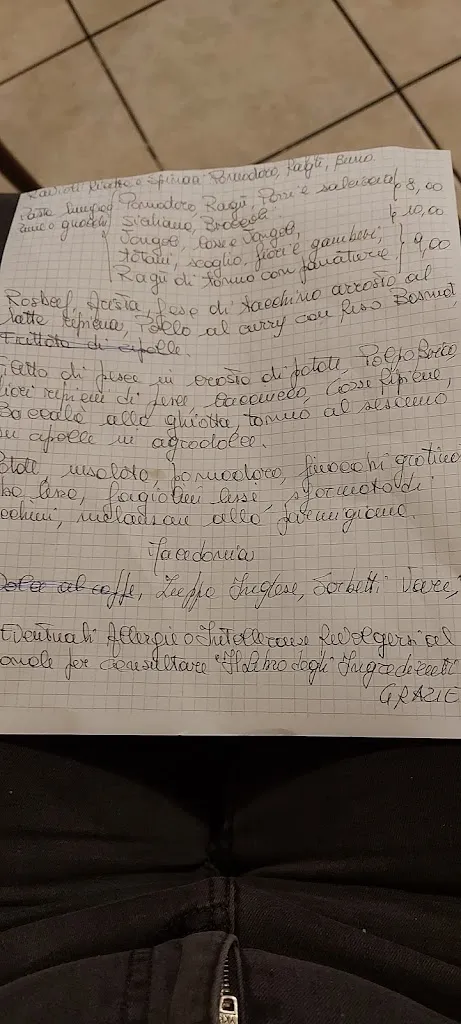 Ravioli Ricotta e Spinaci Pomodoro, Ragù, Burro
Pasta lunga o Pomodoro, Ragù, Porri e salsiccia 8,00
rune o gnocchi Siciliana, Broccoli 10,00
Vongole, Cozze e Vongole,
totani, scoglio, fiori e gamberi, 9,00
Ragù di tonno con panatura
Rosbeef, fesa di tacchino arrosto al
latte ripiena, Pollo al curry con Riso Basmati,
Frittata di cipolle.
iletto di pesce in crosta di patate, Polpo
iori ripieni di pesce, Cozze Ripiene,
Baccalà alla ghiotta, tonno al sesamo
su cipolle in agrodolce.
atate insalata, pomodoro, finocchi gratina
lesso, fagiolini lessi, sformato di
cchini, melanzane alla parmigiana.
Macedonia
al caffe, Zuppa Inglese, Sorbetti Vari,
Eventuali Allergie o Intolleranze Rivolgersi al
onale per consultare Il libro degli Ingredienti
GRAZIE